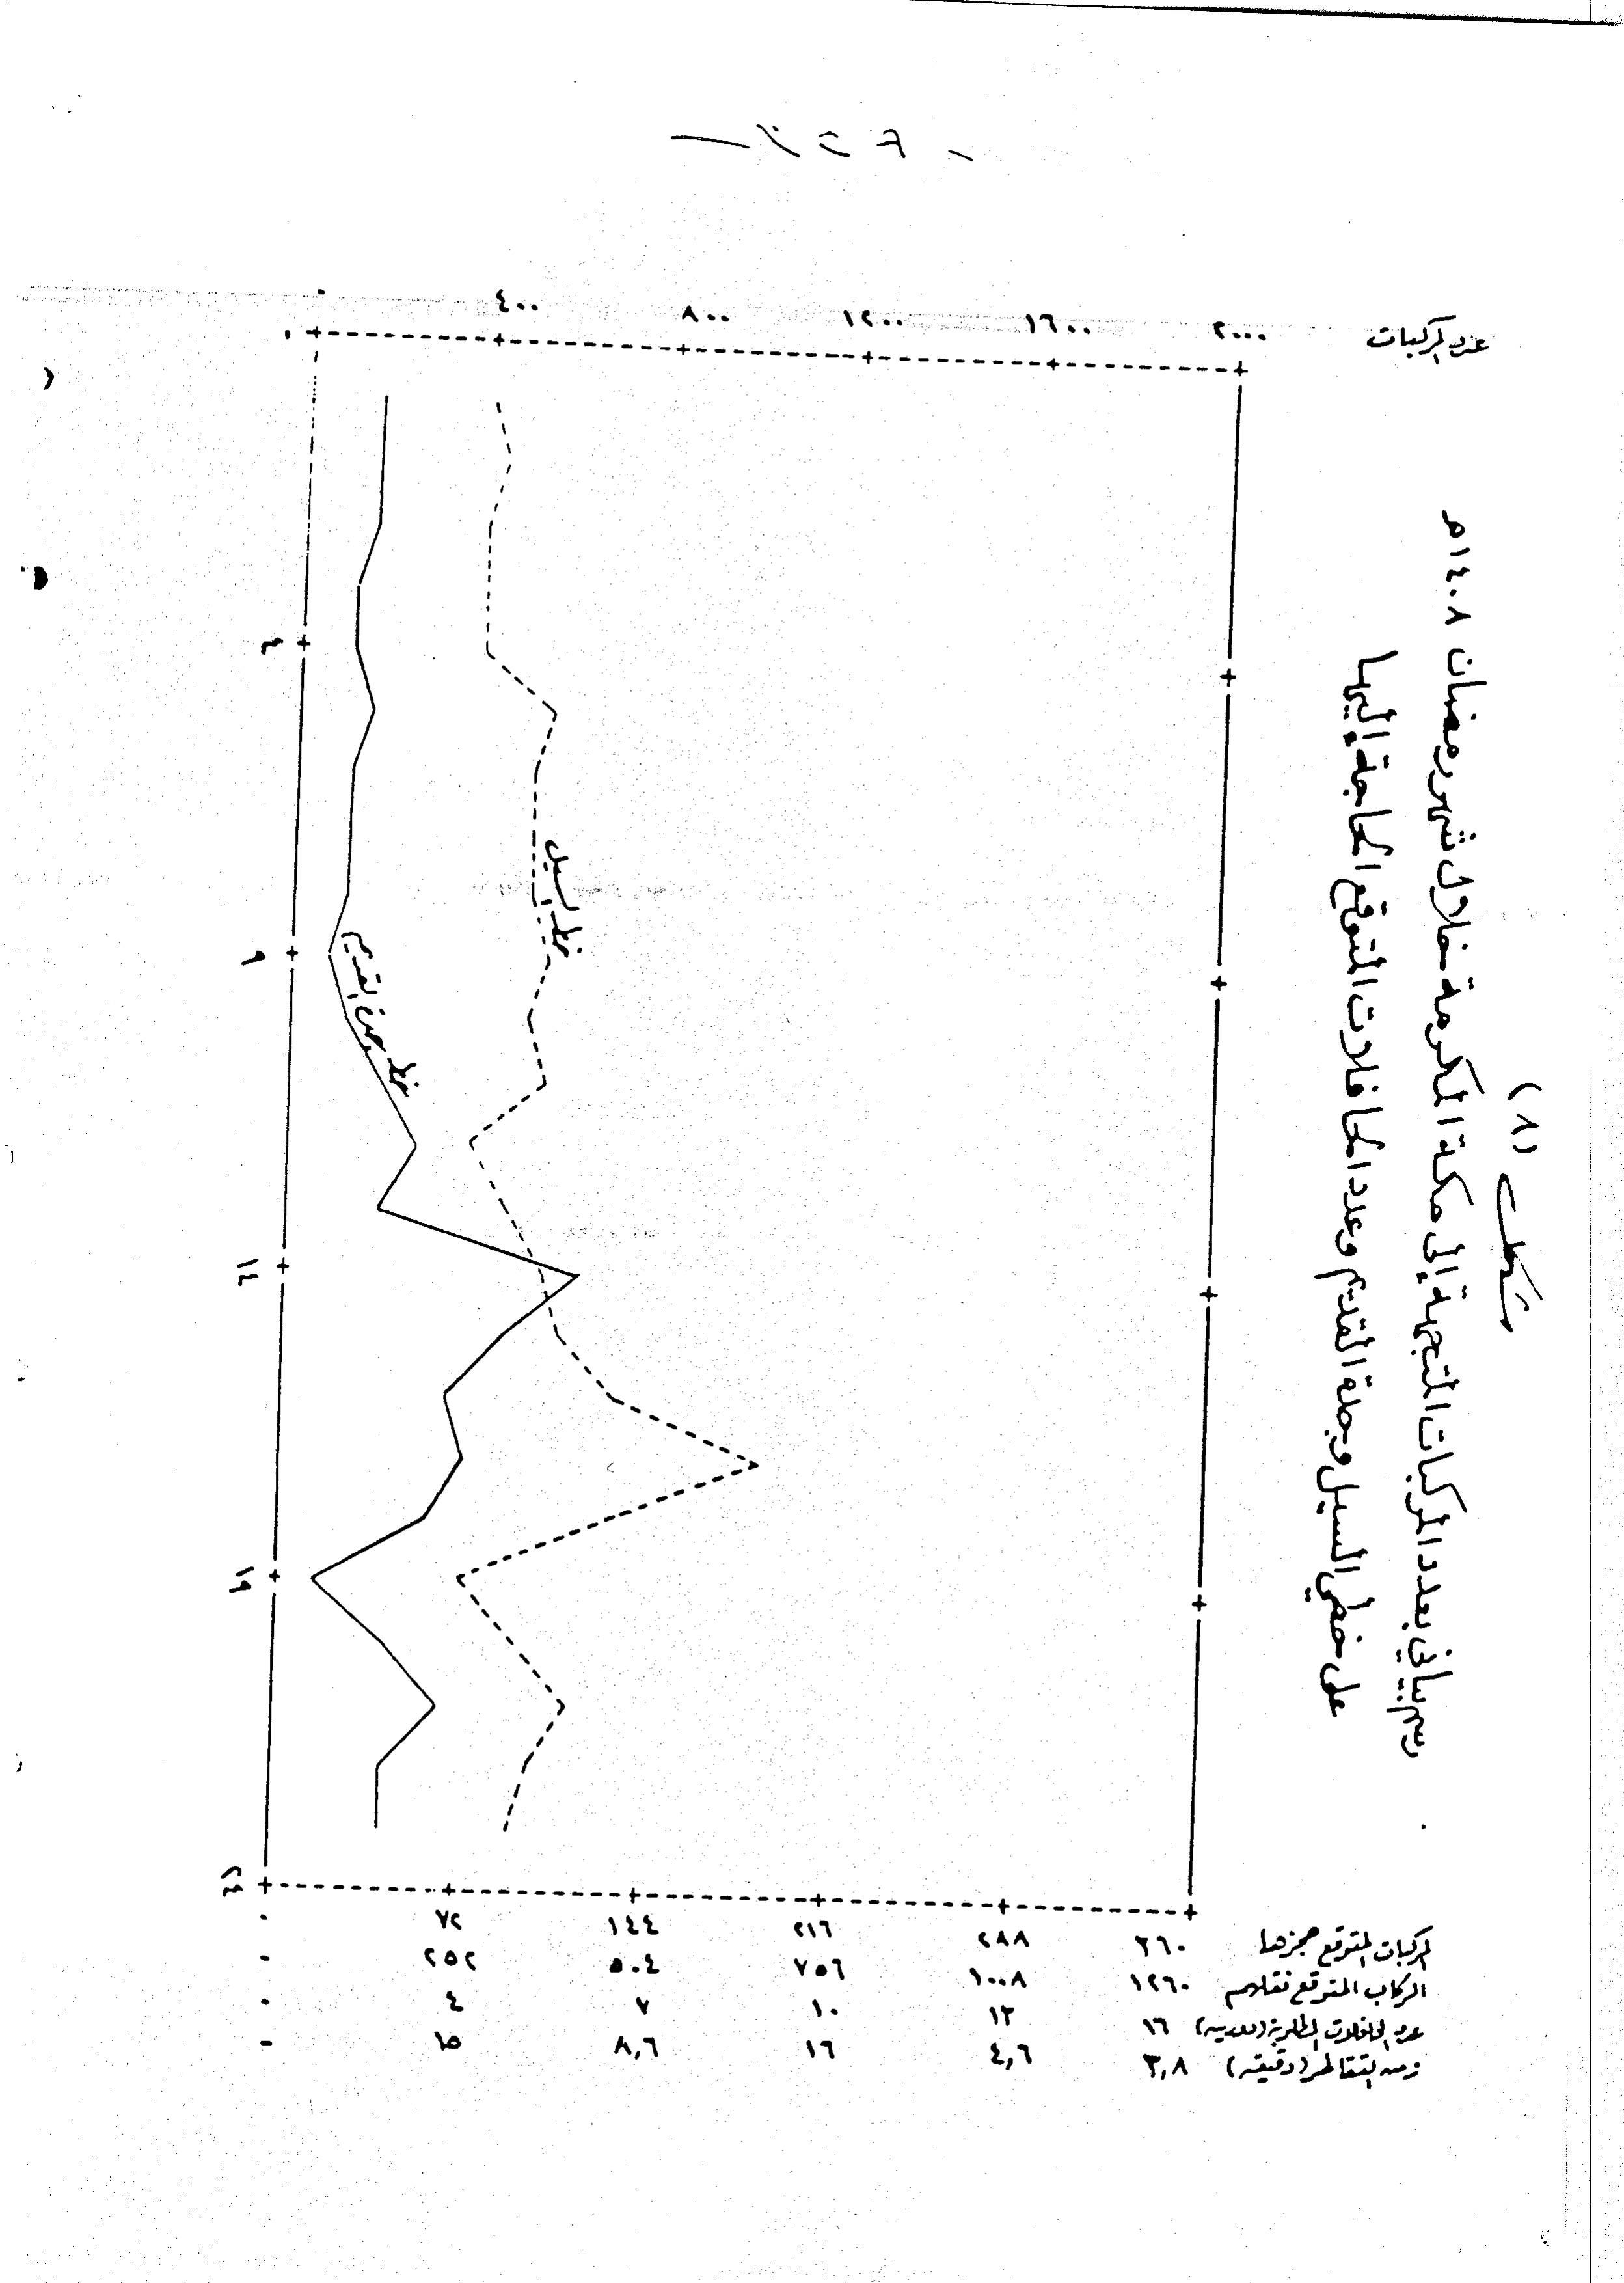 شكل (٨)
رسم بياني بعدد المركبات المتجهة إلى مكة المكرمة خلال شهر رمضان ١٤٠٨هـ
على خطي السيل وجدة القديم وعدد الحافلات المتوقع الحاجة إليها
عدد المركبات
٢٠٠٠ ١٦٠٠ ١٢٠٠ ٨٠٠ ٤٠٠ ٠
٤
٩
١٤
١٩
خط السيل
خط جدة القديم
المركبات المتوقع حجزها ٣٦٠ ٢٨٨ ٢١٦ ١٤٤ ٧٢ ٠
الركاب المتوقع نقلهم ١٢٦٠ ١٠٠٨ ٧٥٦ ٥٠٤ ٢٥٢ ٠
عدد الحافلات المطلوبة ١٦ ١٣ ١٠ ٧ ٤ ٠
زمن التقاطر (دقيقة) ٣,٨ ٤,٦ ١٦ ٨,٦ ١٥ -